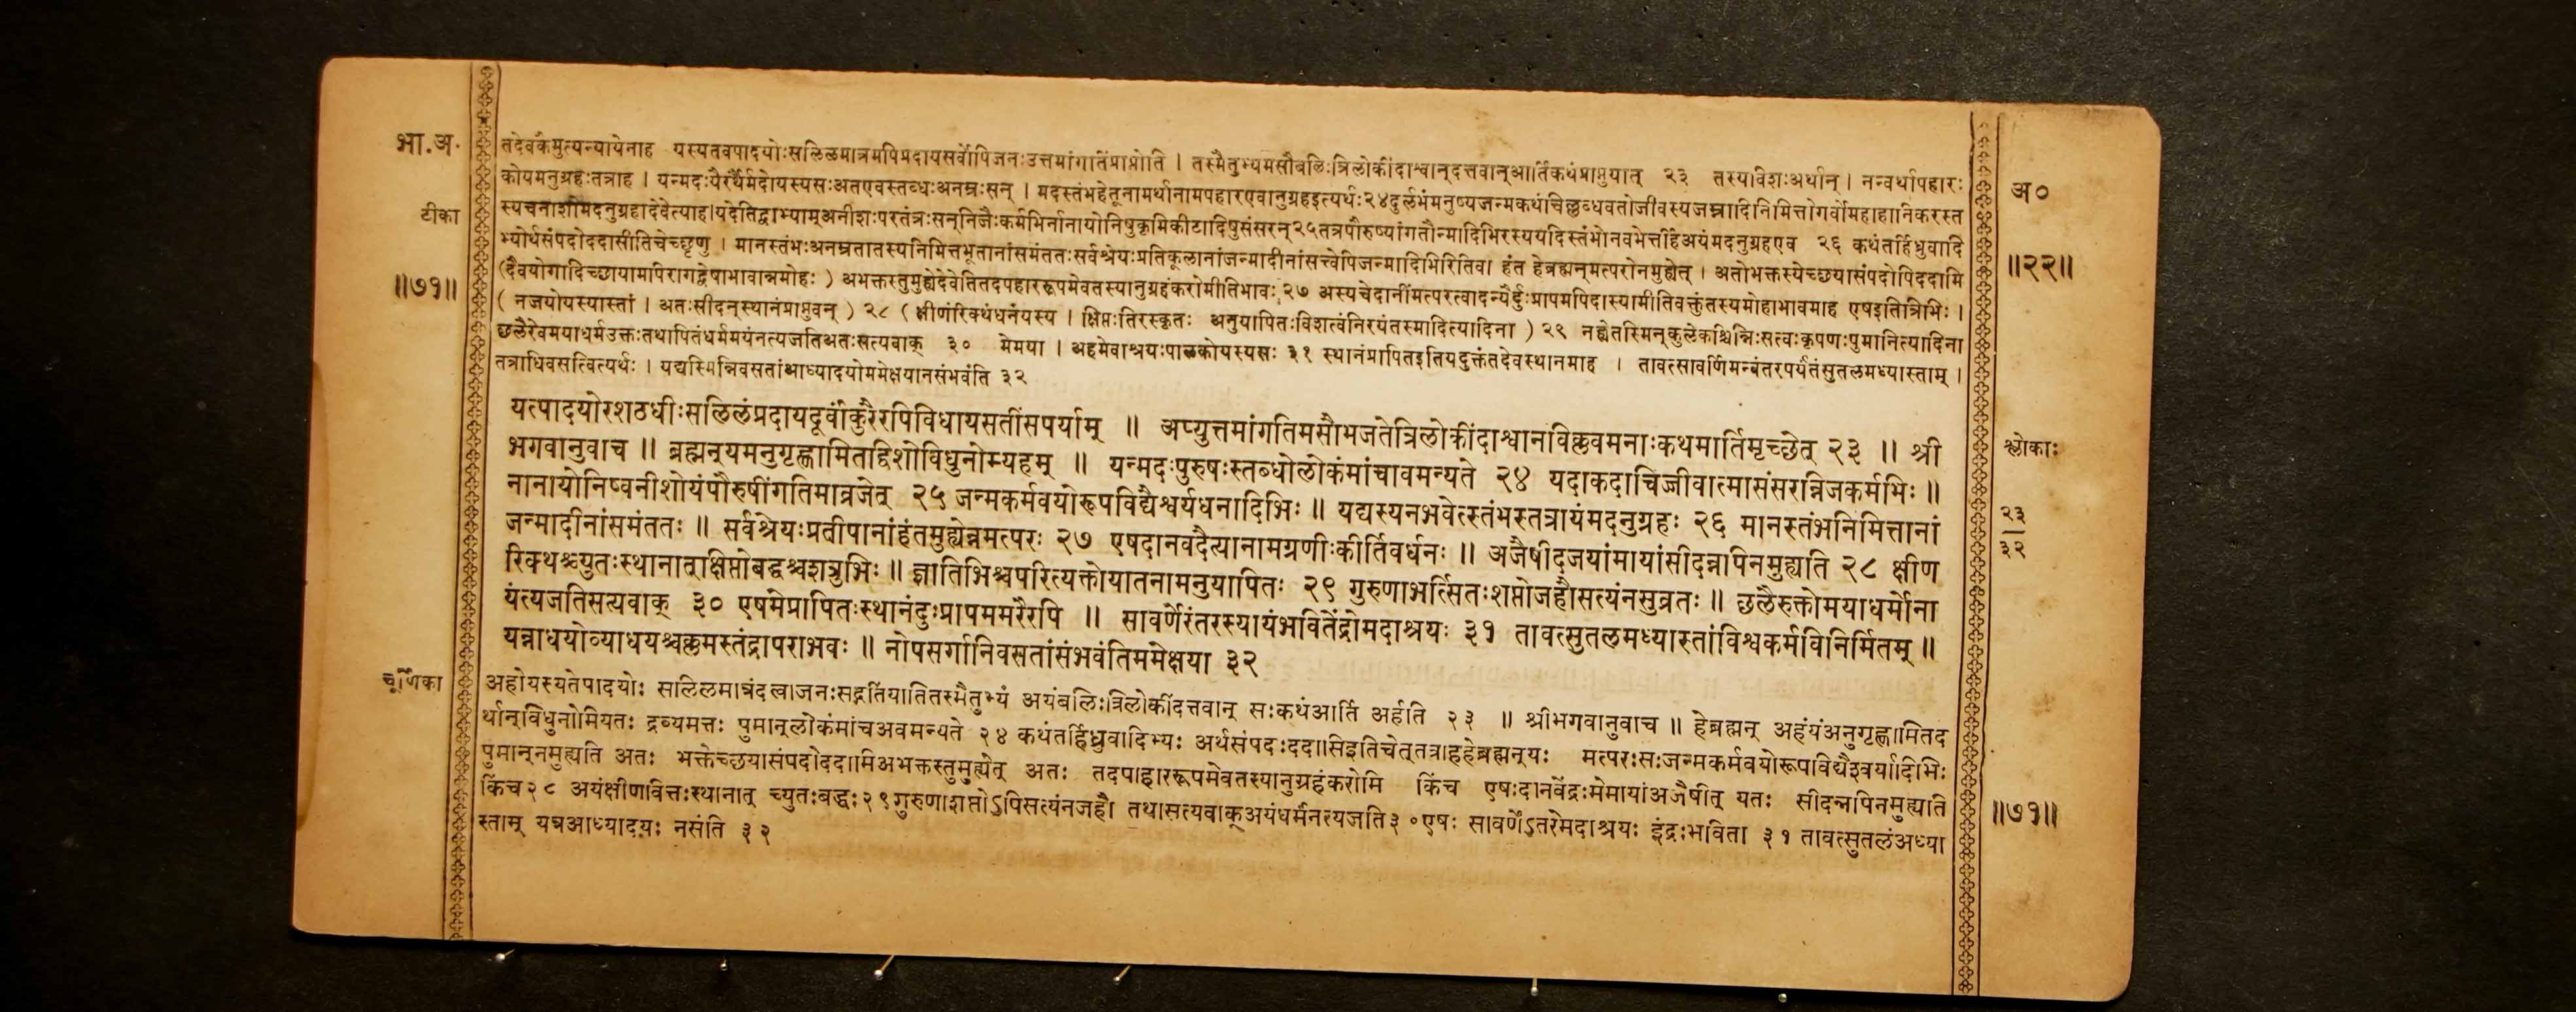 भा.अ.
तदेवकैमुत्यन्यायेनाह यस्यतवपादयोःसलिलमात्रमपिप्रदायसर्वोपिजनःउत्तमांगतिंप्राप्नोति । तस्मैतुभ्यमसौबलिःत्रिलोकींदाश्वान्दत्तवान्आर्तिकथंप्राप्नुयात् २३ तस्यविशःअर्थान् । नन्वर्थापहारः
कोयमनुग्रहःतत्राह । यन्मदःयैरर्थैर्मदोयस्यसःअतएवस्तब्धःअनम्रःसन् । मदस्तंभहेतूनामर्थानामपहारएवानुग्रहइत्यर्थः२४दुर्लभंमनुष्यजन्मकथंचिल्लब्धवतोजीवस्यजन्मादिनिमित्तोगर्वोमहाहानिकरस्त
अ०
टीका
स्यचनाशोमदनुग्रहादेवेत्याह।यदेतिद्वाभ्याम्अनीशःपरतंत्रःसन्निजैःकर्मभिर्नानायोनिषुकृमिकीटादिषुसंसरन्२५तत्रपौरुष्यांगतौन्मादिभिरस्ययदिस्तंभोनवभेत्तर्हिअयंमदनुग्रहएव २६ कथंतर्हिध्रुवादि
भ्योर्थसंपदोददासीतिचेच्छृणु । मानस्तंभःअनम्रतातस्यनिमित्तभूतानांसमंततःसर्वश्रेयःप्रतिकूलानांजन्मादीनांसत्त्वेपिजन्मादिभिरितिवा हंत हेब्रह्मन्मत्परोनमुह्येत् । अतोभक्तस्येच्छयासंपदोपिददामि
॥२२॥
॥७१॥
(दैवयोगादिच्छायामपिरागद्वेषाभावान्नमोहः ) अभक्तस्तुमुह्येदेवेतितदपहाररूपमेवतस्यानुग्रहंकरोमीतिभावः २७ अस्यचेदानींमत्परत्वादन्यैर्दुःप्रापमपिदास्यामीतिवक्तुंतस्यमोहाभावमाह एषइतित्रिभिः ।
( नजयोयस्यास्तां । अतःसीदन्स्थानंप्राप्नुवन् ) २८ ( क्षीणंरिक्थंधनंयस्य । क्षिप्तःतिरस्कृतः अनुयापितःविशत्वंनिरयंतस्मादित्यादिना ) २९ नह्येतस्मिन्कुलेकश्चिन्निःसत्वःकृपणःपुमानित्यादिना
छलैरेवमयाधर्मउक्तःतथापितंधर्ममयंनत्यजतिअतःसत्यवाक् ३० मेमया । अहमेवाश्रयःपालकोयस्यसः ३१ स्थानंप्रापितइतियदुक्तंतदेवस्थानमाह । तावत्सावर्णिमन्वंतरपर्यंतंसुतलमध्यास्ताम् ।
तत्राधिवसत्वित्यर्थः । यद्यस्मिन्निवसतांआध्यादयोममेक्षयानसंभवंति ३२
यत्पादयोरशठधीःसलिलंप्रदायदूर्वांकुरैरपिविधायसतींसपर्याम् ॥ अप्युत्तमांगतिमसौभजतेत्रिलोकींदाश्वानविक्लवमनाःकथमार्तिमृच्छेत् २३ ॥ श्री
श्लोकाः
भगवानुवाच ॥ ब्रह्मन्यमनुगृह्णामितद्विशोविधुनोम्यहम् ॥ यन्मदःपुरुषःस्तब्धोलोकंमांचावमन्यते २४ यदाकदाचिज्जीवात्मासंसरन्निजकर्मभिः ॥
नानायोनिष्वनीशोयंपौरुषींगतिमाव्रजेत् २५ जन्मकर्मवयोरूपविद्यैश्वर्यधनादिभिः ॥ यद्यस्यनभवेत्स्तंभस्तत्रायंमदनुग्रहः २६ मानस्तंभनिमित्तानां
२३
३२
जन्मादीनांसमंततः ॥ सर्वश्रेयःप्रतीपानांहंतमुह्येन्नमत्परः २७ एषदानवदैत्यानामग्रणीःकीर्तिवर्धनः ॥ अजैषीदजयांमायांसीदन्नपिनमुह्यति २८ क्षीण
रिक्थश्च्युतःस्थानात्क्षिप्तोबद्धश्चशत्रुभिः ॥ ज्ञातिभिश्चपरित्यक्तोयातनामनुयापितः २९ गुरुणाभर्त्सितःशप्तोजहौसत्यंनसुव्रतः ॥ छलैरुक्तोमयाधर्मोना
यंत्यजतिसत्यवाक् ३० एषमेप्रापितःस्थानंदुःप्रापममरैरपि ॥ सावर्णेरंतरस्यायंभवितेंद्रोमदाश्रयः ३१ तावत्सुतलमध्यास्तांविश्वकर्मविनिर्मितम् ॥
यन्नाधयोव्याधयश्चक्लमस्तंद्रापराभवः ॥ नोपसर्गानिवसतांसंभवंतिममेक्षया ३२
चूर्णिका
अहोयस्यतेपादयोः सलिलमात्रंदत्वाजनःसद्गतिंयातितस्मैतुभ्यं अयंबलिःत्रिलोकींदत्तवान् सःकथंआर्ति अर्हति २३ ॥ श्रीभगवानुवाच ॥ हेब्रह्मन् अहंयंअनुगृह्णामितद
र्थान्विधुनोमियतः द्रव्यमत्तः पुमान्लोकंमांचअवमन्यते २४ कथंतर्हिध्रुवादिभ्यः अर्थसंपदःददासिइतिचेत्तत्राहहेब्रह्मन्यः मत्परःसःजन्मकर्मवयोरूपविद्यैश्वर्यादिभिः
पुमान्नमुह्यति अतः भक्तेच्छयासंपदोददामिअभक्तस्तुमुह्येत् अतः तदपाहाररूपमेवतस्यानुग्रहंकरोमि किंच एषःदानवेंद्रःमेमायांअजैषीत् यतः सीदन्नपिनमुह्यति
किंच२८ अयंक्षीणवित्तःस्थानात् च्युतःबद्धः२९गुरुणाशप्तोऽपिसत्यंनजहौ तथासत्यवाक्अयंधर्मंनत्यजति३०एषः सावर्णेऽतरेमदाश्रयः इंद्रःभविता ३१ तावत्सुतलंअध्या
॥७१॥
स्ताम् यत्रआध्यादयः नसंति ३२